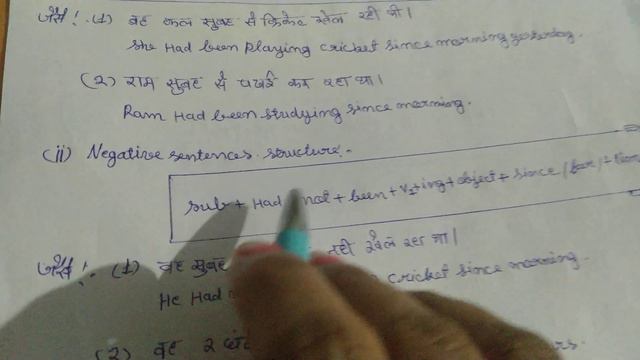 जैसे!. (1) वह कल सुबह से क्रिकेट खेल रही थी।
She Had been playing cricket since morning yesterday.
(2) राम सुबह से पढ़ाई कर रहा था।
Ram Had been studying since morning.
(ii) Negative sentences structure.-
sub + Had not + been + V1+ing + object + since /
जैसे!. (1) वह सुबह नही खेल रहा था।
He Had cricket since morning.
(2) वह 2